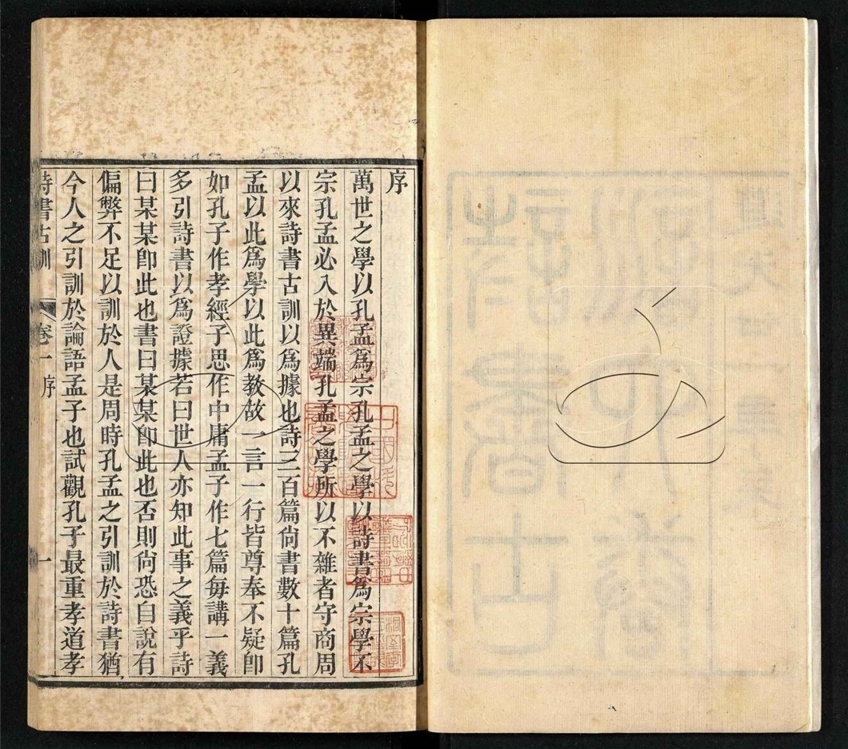 序
萬世之學以孔孟爲宗孔孟之學以詩書爲宗學不
宗孔孟必入於異端孔孟之學所以不雜者守商周
以來詩書古訓以爲據也詩三百篇尙書數十篇孔
孟以此爲學以此爲敎故一言一行皆尊奉不疑卽
如孔子作孝經子思作中庸孟子作七篇每講一義
多引詩書以爲證據若曰世人亦知此事之義乎詩
曰某某卽此也書曰某某卽此也否則尙恐自說有
偏弊不足以訓於人是周時孔孟之引訓於詩書猶
今人之引訓於論語孟子也試觀孔子最重孝道孝
詩書古訓 卷一 序 一